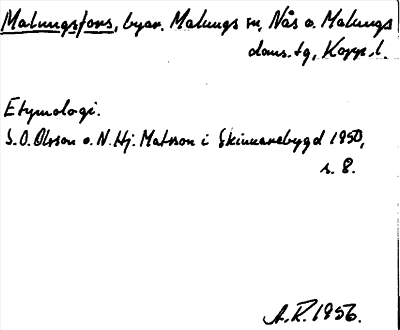 Malungsfors, byar. Malungs sn, Nås o. Malungs
doms. tg, Kopp. l.
Etymologi.
S.O. Olsson o. N. Hj. Matsson i Skinnarebygd 1950,
s. 8.
A.R. 1956.